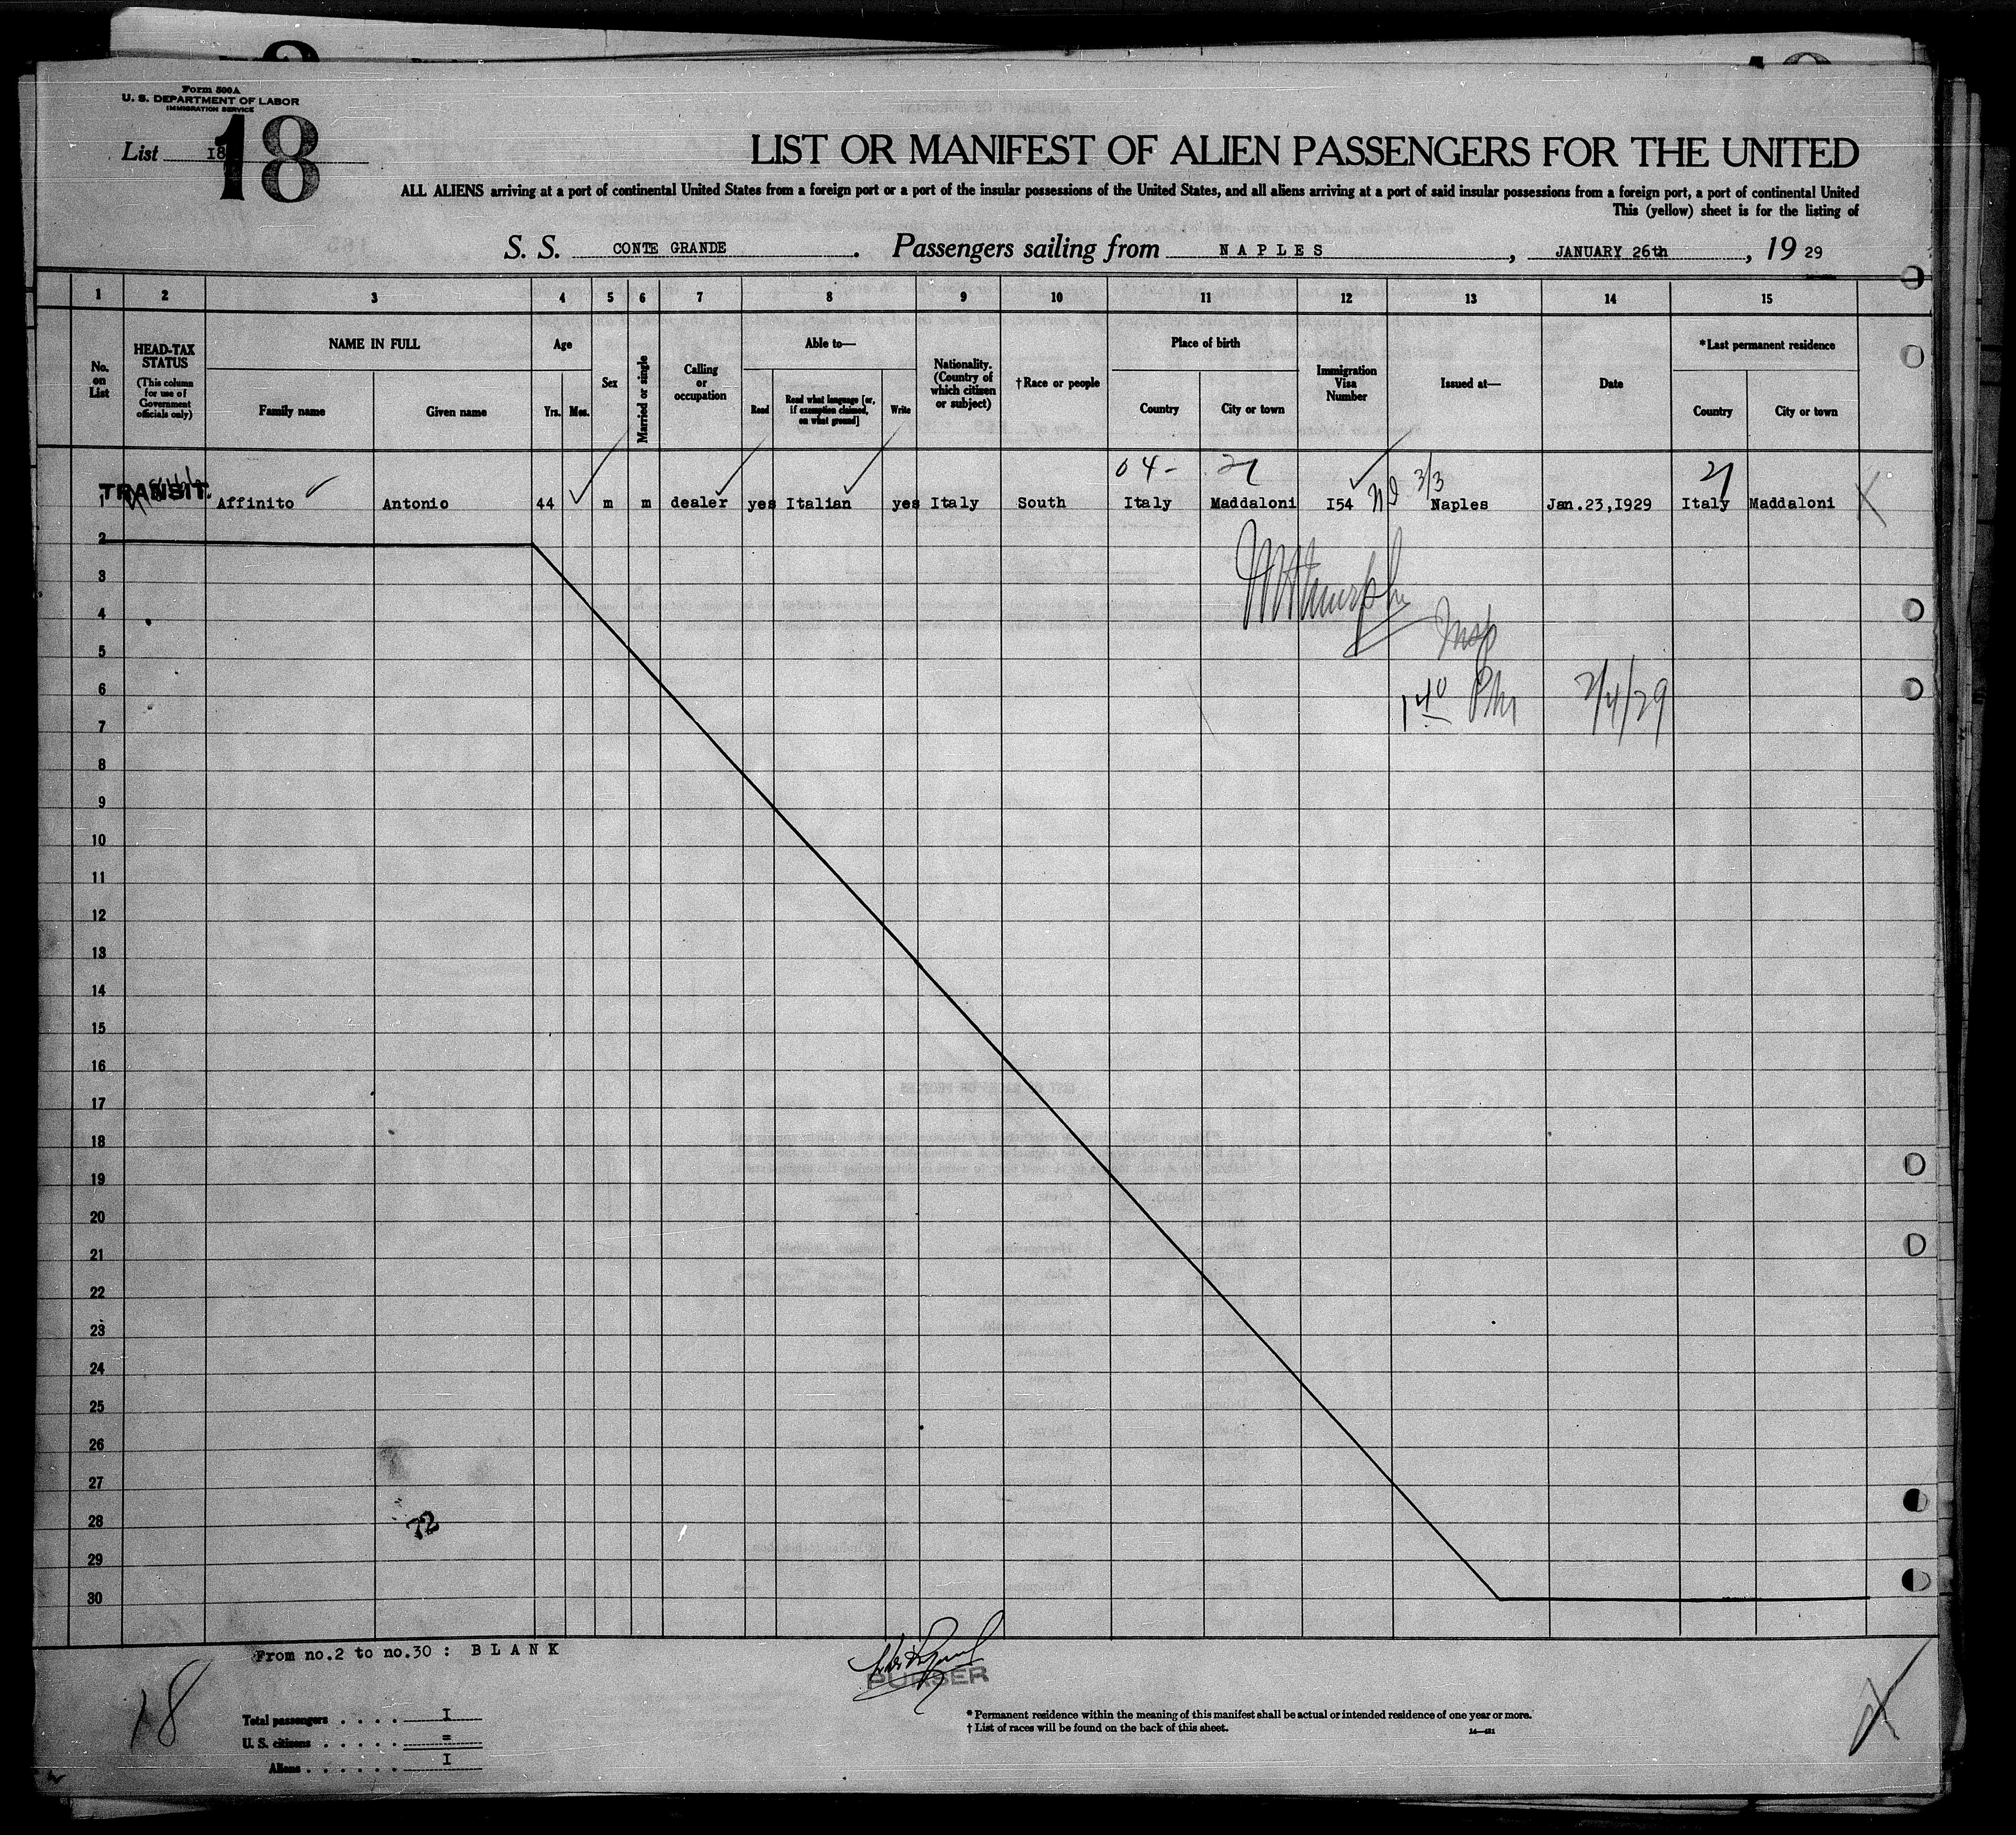 Form 500A
U. S. DEPARTMENT OF LABOR
IMMIGRATION SERVICE
18
List 18
LIST OR MANIFEST OF ALIEN PASSENGERS FOR THE UNITED
ALL ALIENS arriving at a port of continental United States from a foreign port or a port of the insular possessions of the United States, and all aliens arriving at a port of said insular possessions from a foreign port, a port of continental United
This (yellow) sheet is for the listing of
S. S. CONTE GRANDE. Passengers sailing from NAPLES, JANUARY 26th, 19 29
1 2 3 4 5 6 7 8 9 10 11 12 13 14 15
No. on List
HEAD-TAX STATUS
(This column for use of Government officials only)
NAME IN FULL
Family name
Given name
Age
Yrs.
Mos.
Sex
Married or single
Calling or occupation
Able to—
Read
Read what language [or, if exemption claimed, on what ground]
Write
Nationality. (Country of which citizen or subject)
†Race or people
Place of birth
Country
City or town
Immigration Visa Number
Issued at—
Date
*Last permanent residence
Country
City or town
04-
3/3
1 TRANSIT. Affinito Antonio 44 m m dealer yes Italian yes Italy South Italy Maddaloni I54 Naples Jan.23,1929 Italy Maddaloni X
2
3
4
Insp
5
6
1 40 PM 2/4/29
7
8
9
10
11
12
13
14
15
16
17
18
19
20
21
22
23
24
25
26
27
28
72
29
30
From no.2 to no.30 : BLANK
PURSER
18
X
Total passengers . . . . I
U. S. citizens . . . . . =
Aliens . . . . . . I
* Permanent residence within the meaning of this manifest shall be actual or intended residence of one year or more.
† List of races will be found on the back of this sheet.